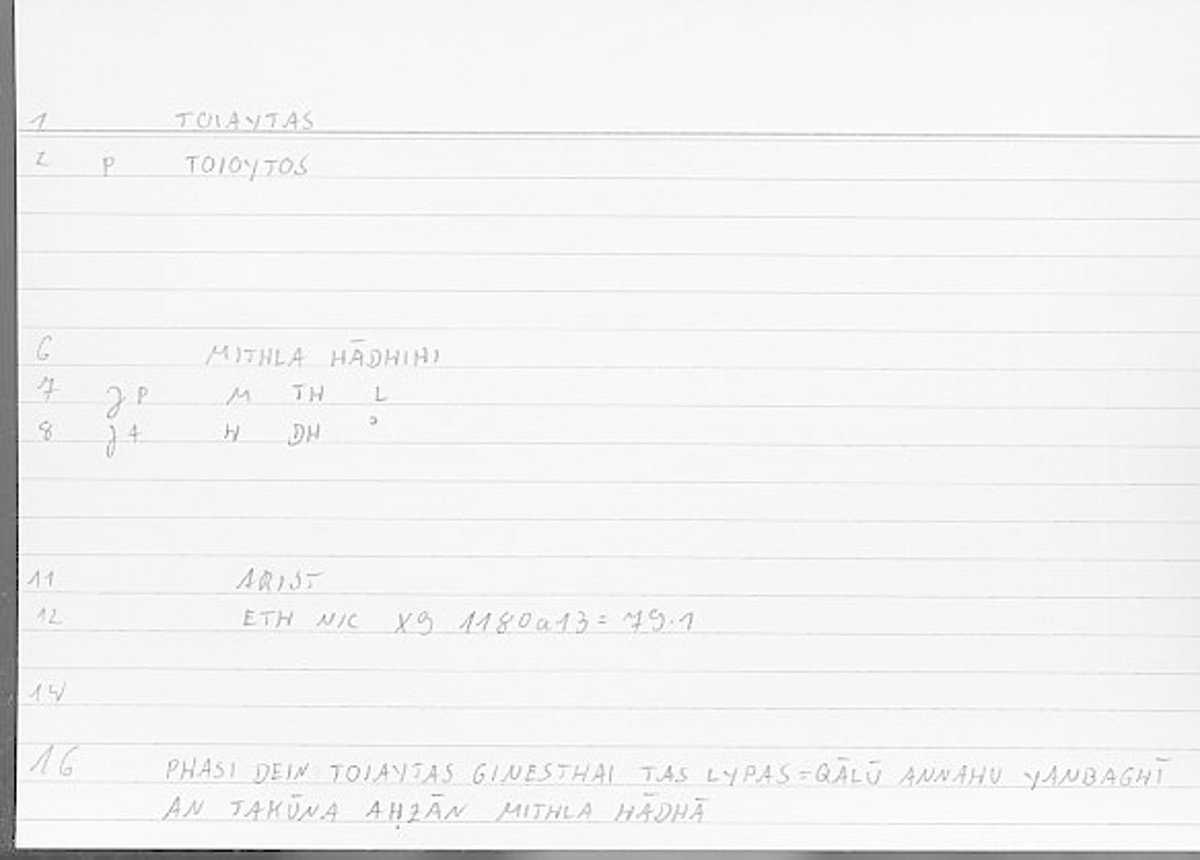 1 TOIAYTAS
2 P TOIOYTOS
6 MITHLA HĀDHIHI
7 J P M TH L
8 J 4 H DH ʾ
11 ARIST
12 ETH NIC X9 1180a13 = 79.1
14
16 PHASI DEIN TOIAYTAS GINESTHAI TAS LYPAS = QĀLŪ ANNAHU YANBAGHĪ
AN TAKŪNA AḤZĀN MITHLA HĀDHĀ